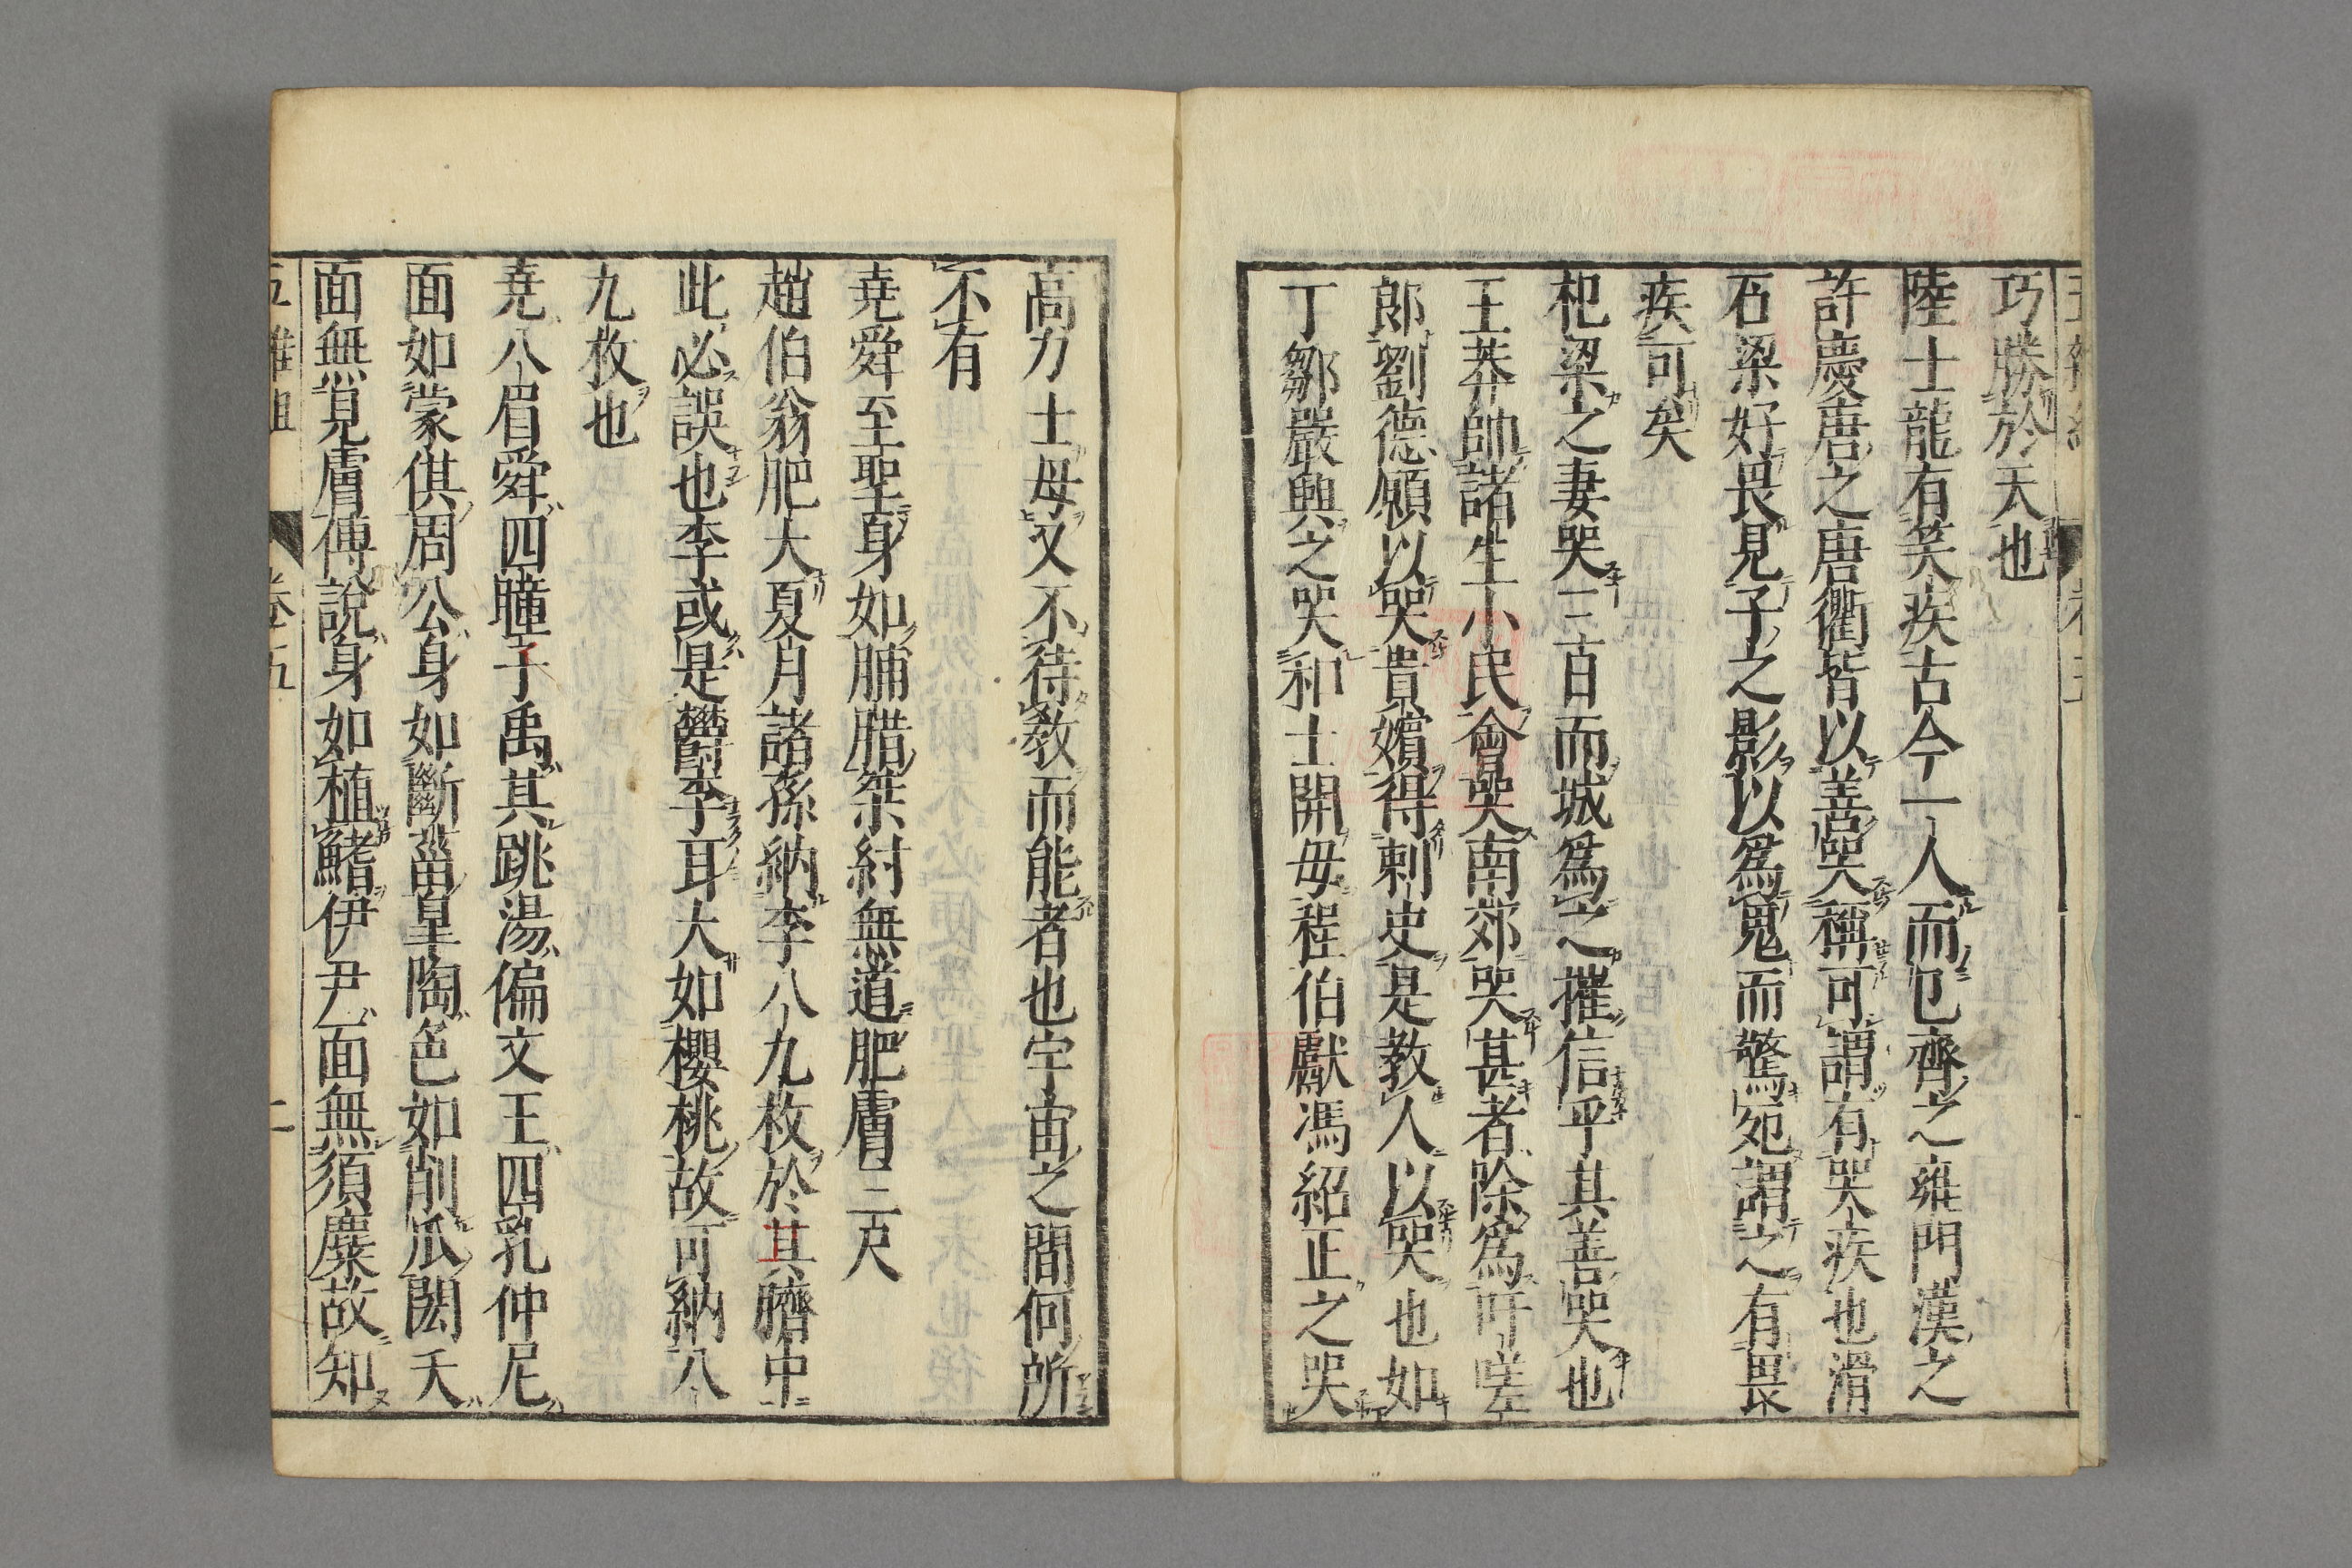 巧勝於天也
陸士龍有笑疾古今一人而已齊之雍門漢之
許慶唐之唐衢皆以善哭稱可謂有哭疾也涓
石梁好畏見子之影以爲鬼而驚死謂之有畏
疾可矣
杞梁之妻哭三百而城爲之摧信乎其善哭也
王莽帥諸生小民會哭南郊哭甚者除爲吁嗟
郎劉德願以哭貴嬪得刺史是教人以哭也如
丁鄒嚴輿之哭和士開母程伯獻馮紹正之哭
高力士母又不待教而能者也宇宙之間何所
不有
堯舜至聖身如脯腊桀紂無道肥膚三尺
趙伯翁肥大夏月諸孫納李八九枚於其臍中
此必誤也李或是欝李耳大如櫻桃故可納八
九枚也
堯八眉舜四瞳子禹其跳湯偏文王四乳仲尼
面如蒙倛周公身如斷菑皐陶色如削瓜閎夭
面無見膚傅說身如植鰭伊尹面無須麋故知
五雜組 卷五 二